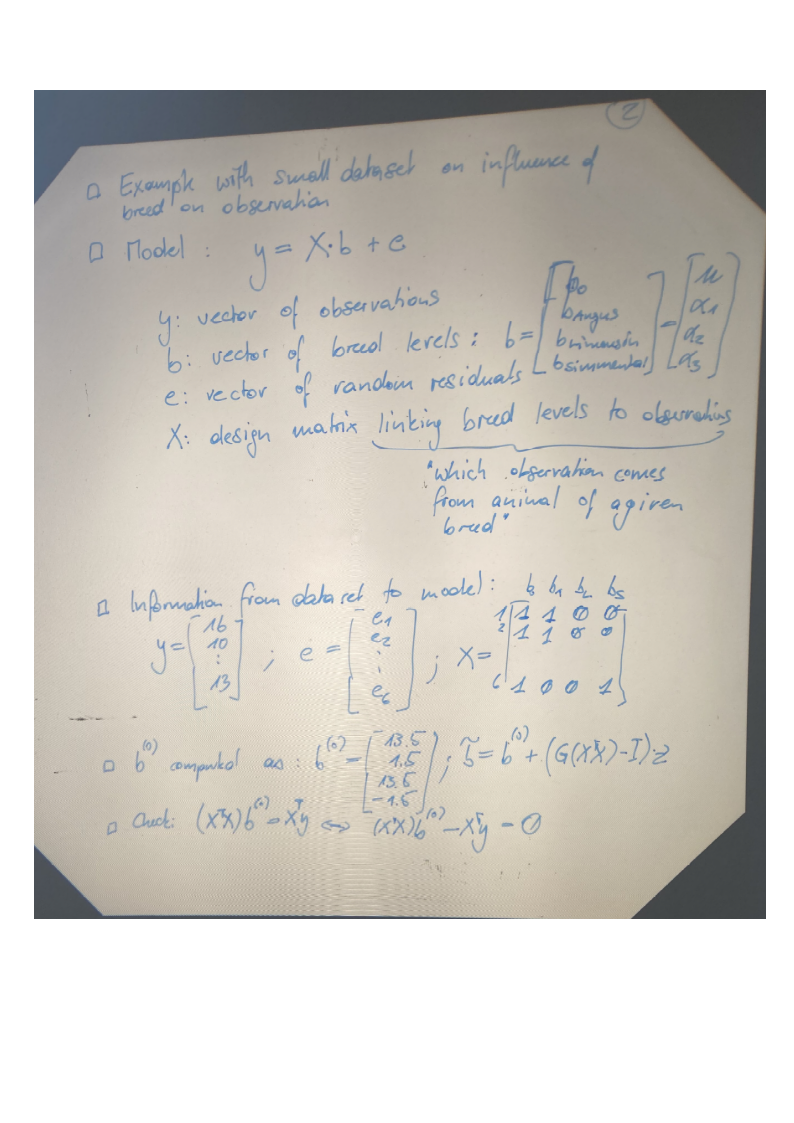 2
□ Example with small dataset on influence of
breed on observation
□ Model : y = X·b + e
y: vector of observations
b: vector of breed levels : b = [b0, bAngus, bLimousin, bSimmental] = [μ, α1, α2, α3]
e: vector of random residuals
X: design matrix linking breed levels to observations
"which observation comes
from animal of a given
breed"
□ Information from dataset to model :
y = [16, 10, ⋮, 13] ; e = [e1, e2, ⋮, e6] ; X =
b0 bA bL bS
1 1 1 0 0
2 1 1 0 0
6 1 0 0 1
□ b(0) computed as : b(0) = [13.5, 1.5, 13.5, -1.5] ; b̃ = b(0) + (G(XᵀX) - I)·z
□ Check: (XᵀX)b(0) = Xᵀy ⇔ (XᵀX)b(0) - Xᵀy = 0